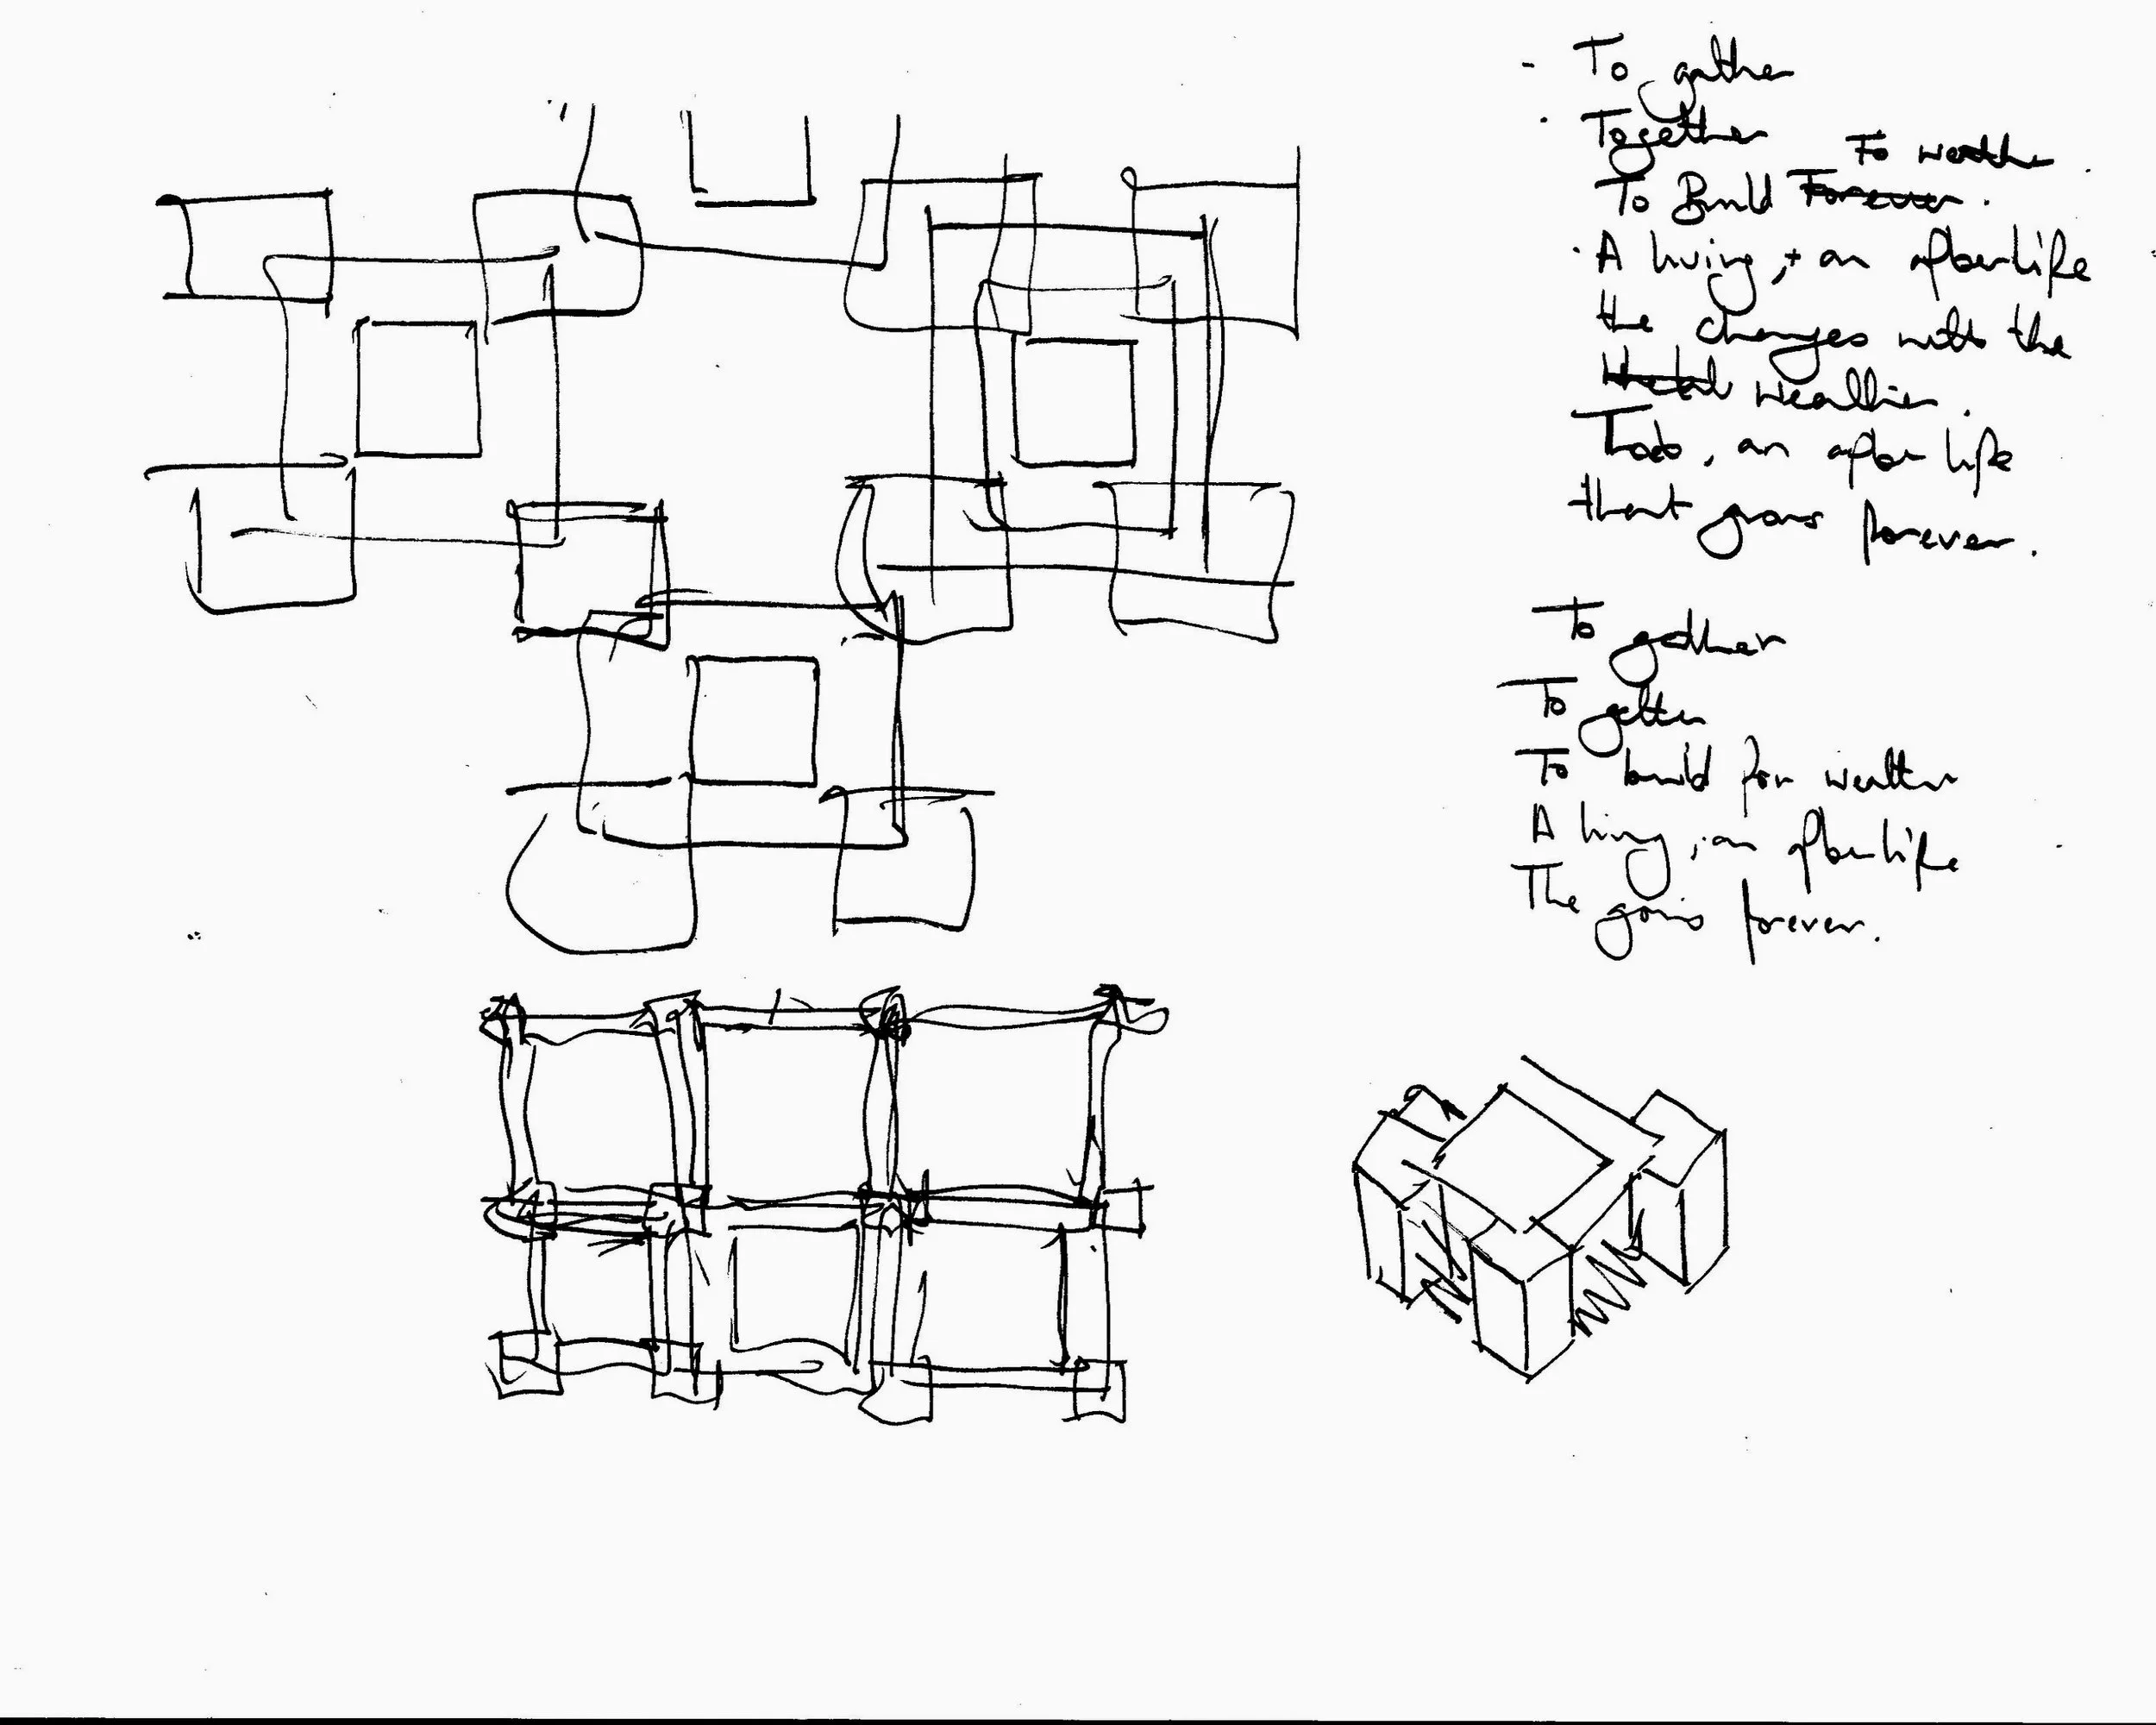 - To gather
· Together
To weather.
To Build Forever.
· A living, + an afterlife
the changes with the
weather.
That, an after life
that grows forever.
To gather
To gether
To build for weather
A living, an afterlife
The grows forever.